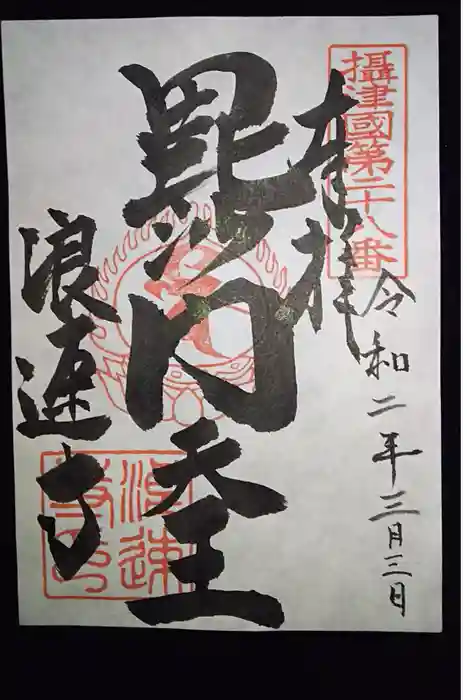 攝津國第二十八番
奉拝
令和二年三月三日
毘沙門天王
浪速寺
浪速寺印